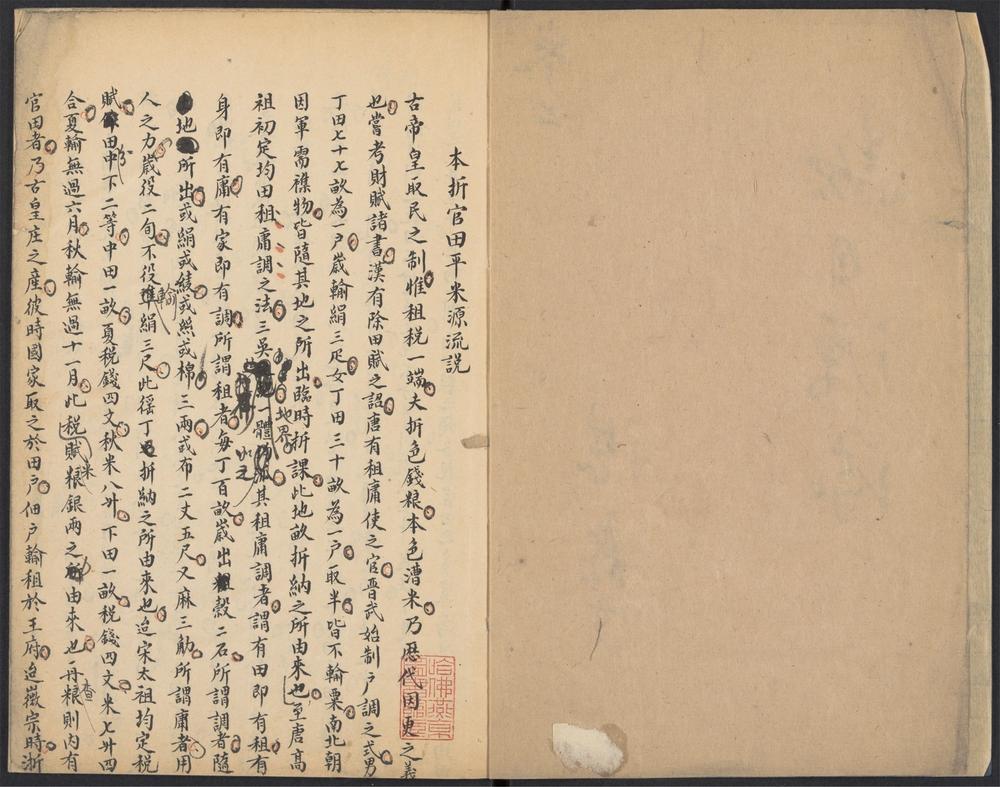 本折官田平米源流說
古帝皇取民之制惟租稅一端夫折色錢粮本色漕米乃歷代因更之義
也嘗考財賦諸書漢有除田賦之詔唐有租庸使之官晋武始制户調之式男
丁田七十七畝為一户歲輸絹三疋女丁田三十畝為一户取半皆不輸粟南北朝
因軍需襍物皆隨其地之所出臨時折課此地畝折納之所由來也至唐高
祖初定均田租庸調之法三吳地界一體如之其租庸調者謂有田即有租有
身即有庸有家即有調所謂租者每丁百畝歲出穀二石所謂調者隨
地所出或絹或綾或絲或棉三兩或布二丈五尺又麻三觔所謂庸者用
人之力歲役二旬不役輸絹三尺此徭丁折納之所由來也迨宋太祖均定稅
賦分田中下二等中田一畝夏稅錢四文秋米八升下田一畝稅錢四文米七升四
合夏輸無過六月秋輸無過十一月此稅賦粮米銀兩之所由來也再查粮則内有
官田者乃古皇庄之產彼時國家取之於田户佃户輸租於王府迨徽宗時浙